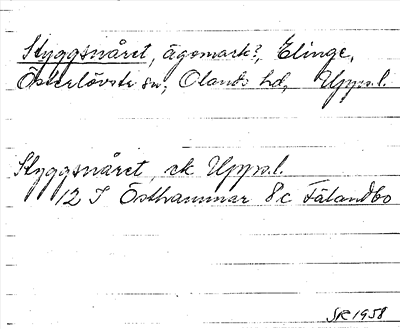 Styggsnåret, ägomark?, Elinge,
Österlövsta sn, Olands hd, Uppsl.
Styggsnåret, ek Uppsl.
12 I Östhammar 8c Fälandbo
SR 1958